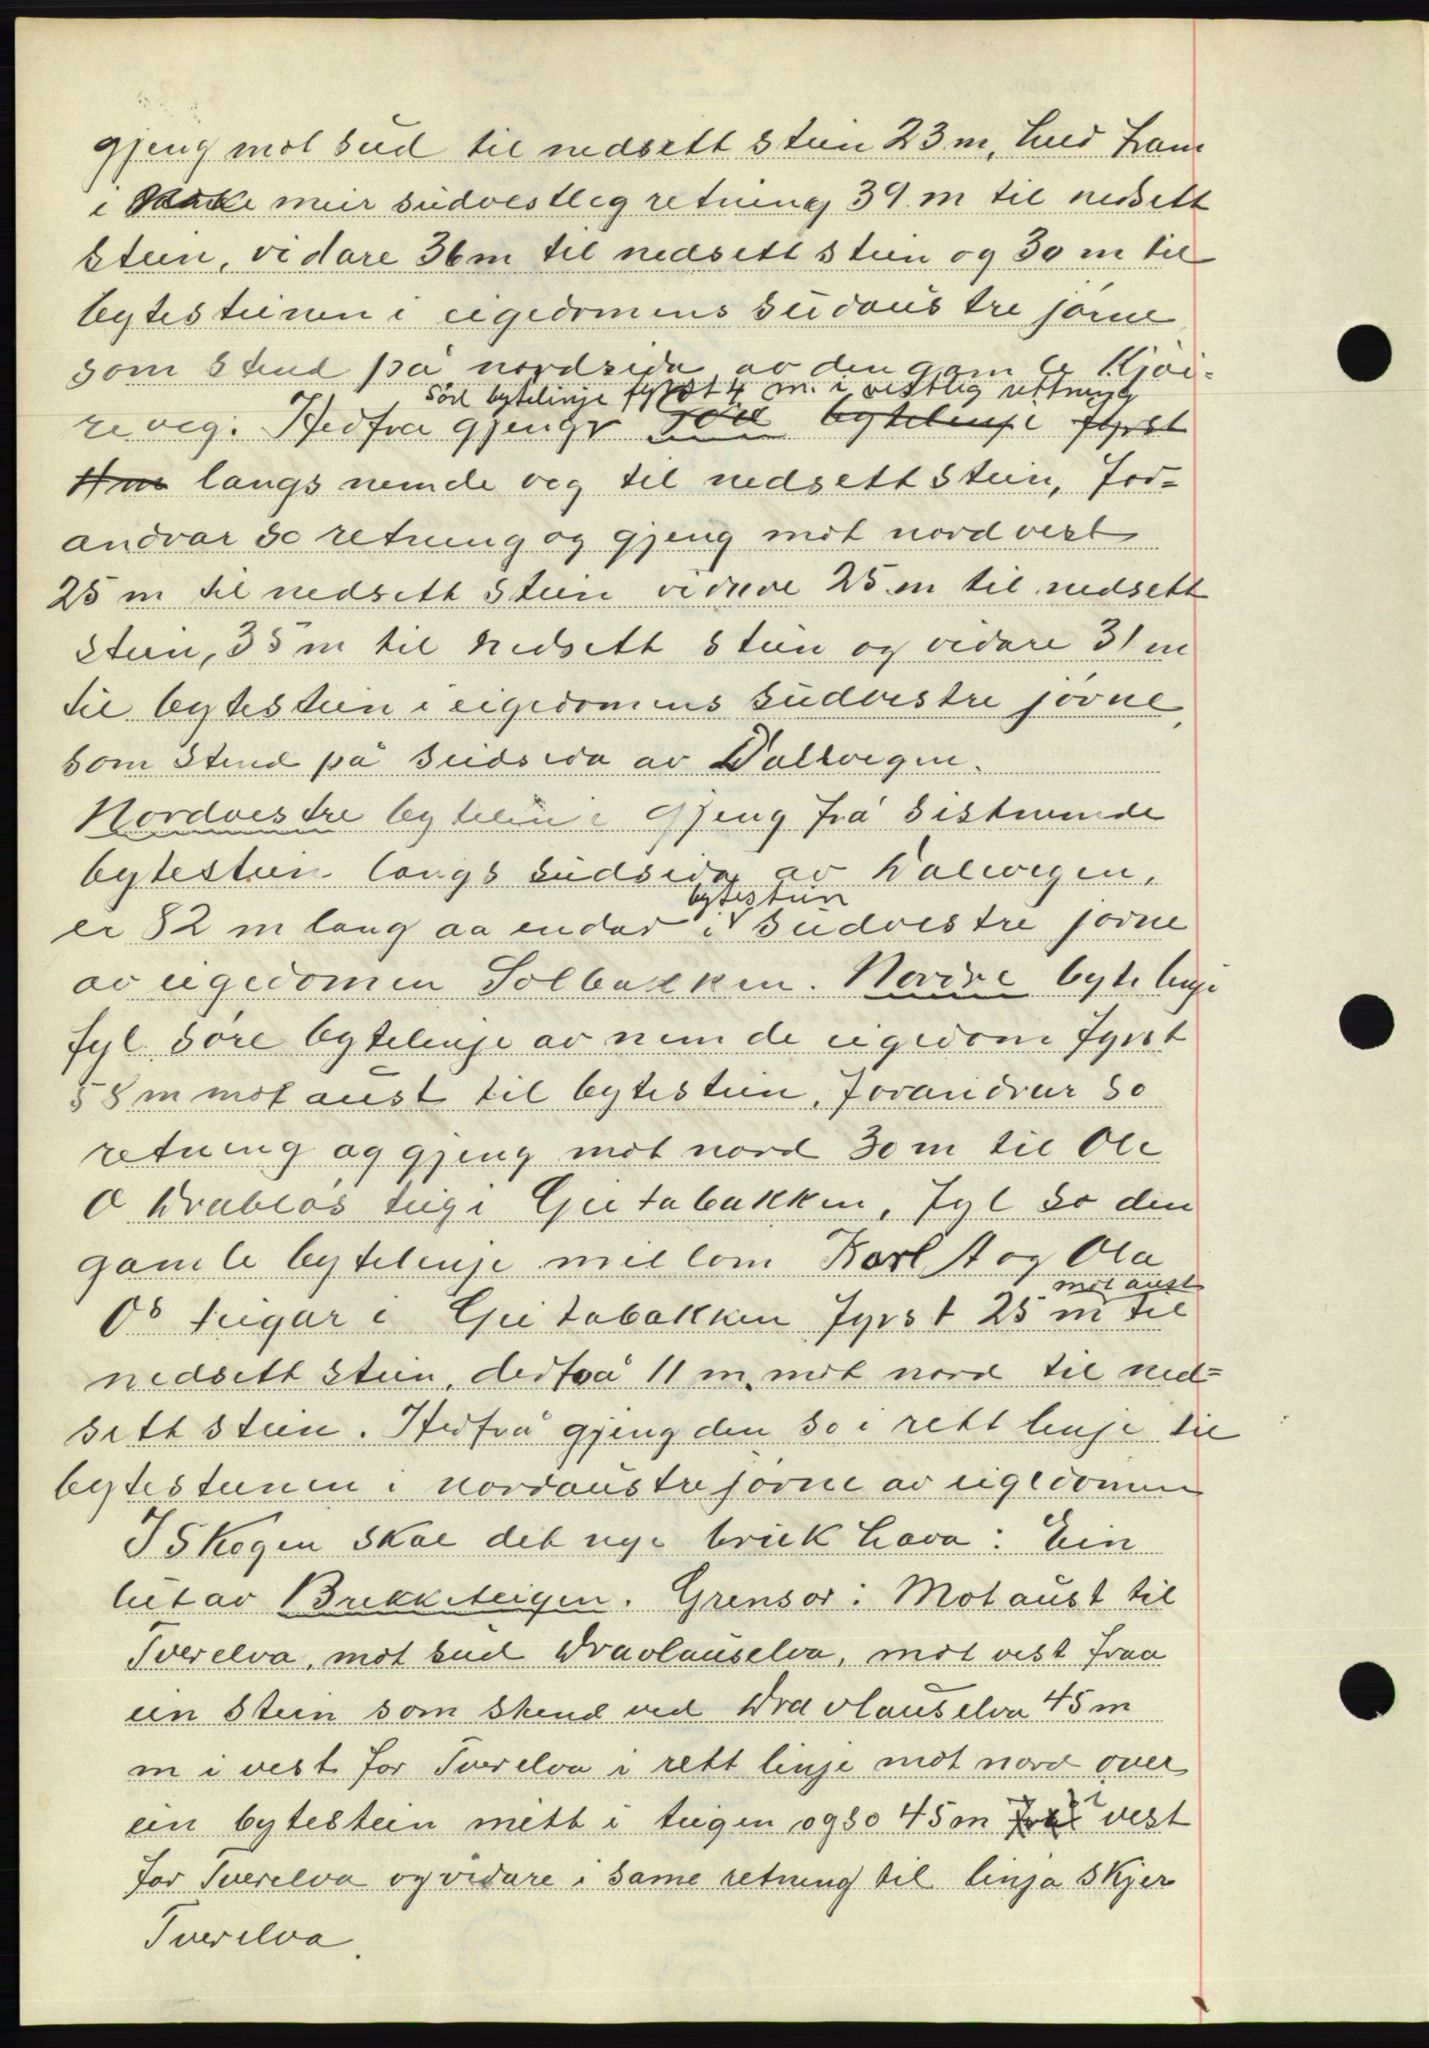 gjeng mot sud til nedsett stein 23 m, held fram
i meir sudvestleg retning 39 m til nedsett
stein, vidare 36 m til nedsett stein og 30 m til
bytesteinen i eigedomens sudaustre jørne
som stend på nordsida av den gamle Kjøi-
søre bytelinje fyrst 4 m. i vestlig rettning
re veg. Hedfra gjengr søre bytelinje fyrst
4 m langs nemde veg til nedsett stein, for-
andrar so retning og gjeng mot nordvest
25 m til nedsett stein vidare 25 m til nedsett
stein, 35 m til nedsett stein og vidare 31 m
til bytestein i eigedomens sudvestre jørne,
som stend på sudsida av Dalevegen.
Nordvestre bytelinje gjeng frå sistnemde
bytestein langs sudsida av Dalevegen,
bytestein
er 82 m lang aa endar i sudvestre jørne
av eigedomen Solbakken. Nordre bytelinje
fyl søre bytelinje av nemde eigedom fyrst
58 m mot aust til bytestein, forandrar so
retning og gjeng mot nord 30 m til Ole
O Drabløs teig i Geitabakken, fyl so den
gamle bytelinje millom Karl A og Ola
mot aust
Os teigar i Geitabakken fyrst 25 m til
nedsett stein, dedfrå 11 m. mot nord til ned=
sett stein. Hedfrå gjeng den so i rett linje til
bytesteinen i nordaustre jørne av eigedomen
I Skogen skal det nye bruk hava: Ein
lut av Brekketeigen. Grensor: Mot aust til
Tverelva, mot sud Dravlauselva, mot vest fraa
ein stein som stend ved Dravlauselva 45 m
m i vest for Tverelva i rett linje mot nord over
ein bytestein mitt i teigen ogso 45 m i vest
for Tverelva og vidare i same retning til linja skjer
Tverelva.